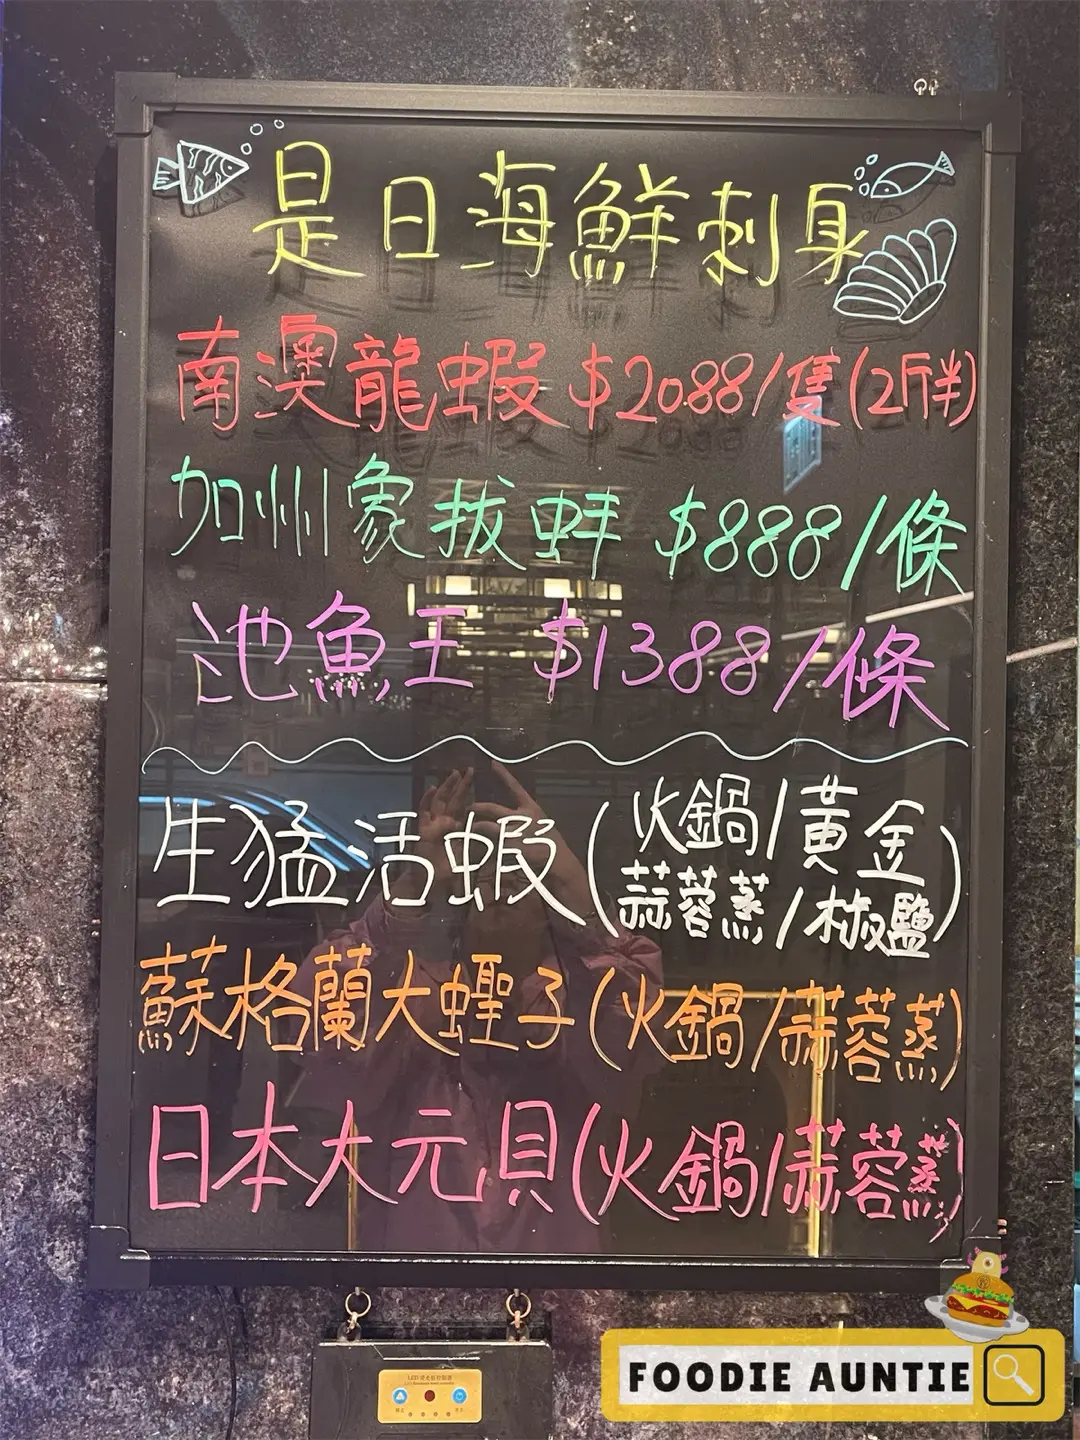 是日海鮮刺身
南澳龍蝦 $2088/隻(2斤半)
加州象拔蚌 $888/條
池魚王 $1388/條
生猛活蝦(火鍋/黃金
蒜蓉蒸/椒鹽)
蘇格蘭大蟶子(火鍋/蒜蓉蒸)
日本大元貝(火鍋/蒜蓉蒸)
FOODIE AUNTIE